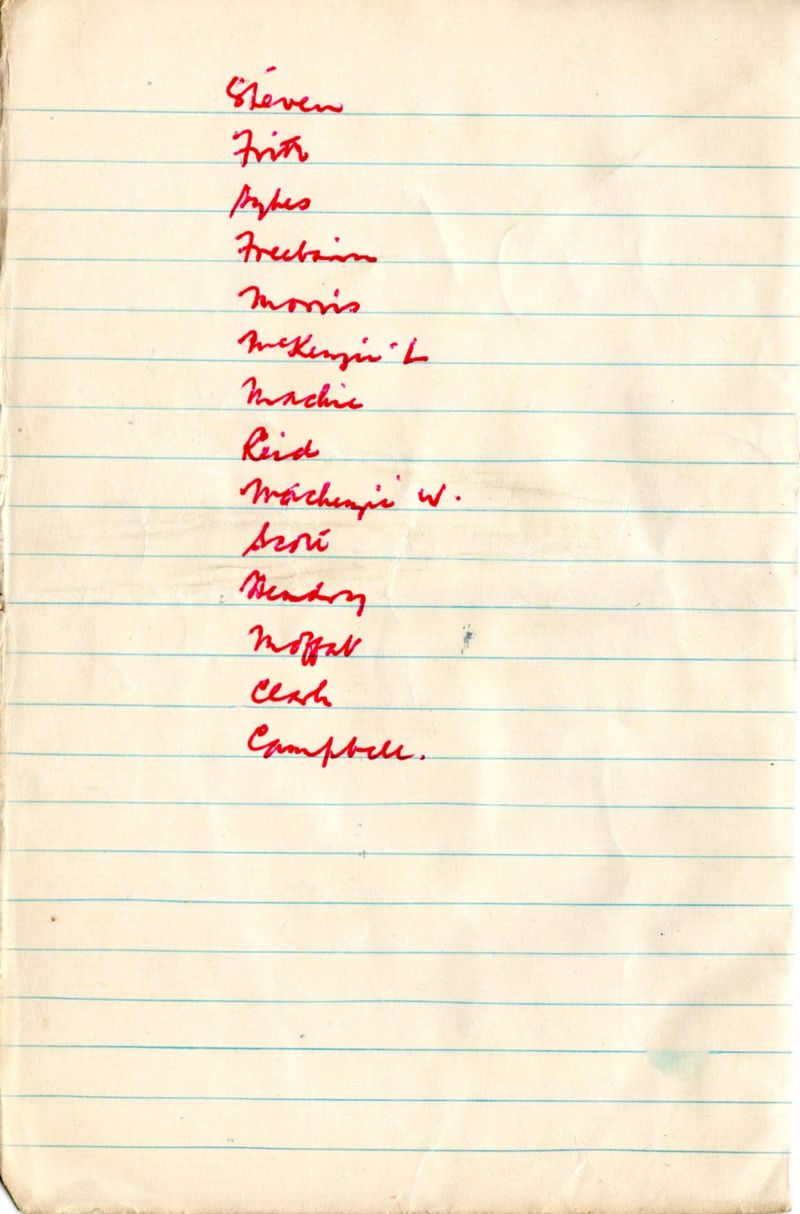 Steven
Frith
Sykes
Freebairn
Morris
McKenzie L
Mackie
Reid
Mackenzie W.
Scott
Hendry
Moffat
Clark
Campbell.